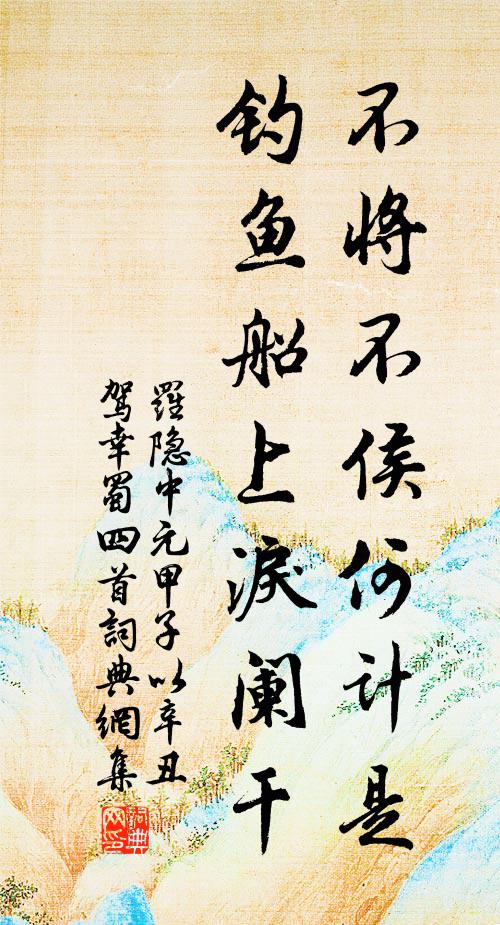 不将不侯何计是
钓鱼船上淚阑干
羅隐中元甲子以辛丑
驾幸蜀四首詞典網集
詞典網印